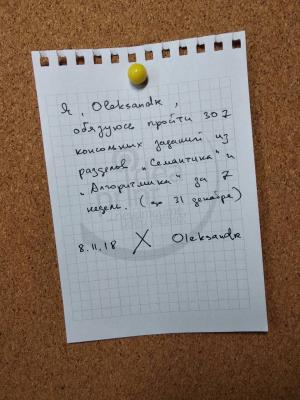 Я, Oleksandr,
обязуюсь пройти 307
консольных заданий из
разделов „Семантика" и
„Алгоритмика" за 7
недель. (до 31 декабря)
8.11.18 X Oleksandr